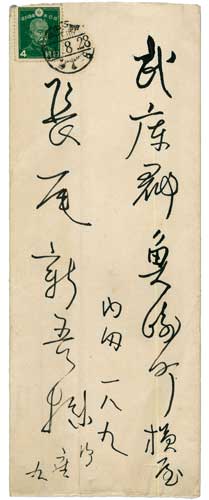 武庫郡魚崎町横屋
内田 一八九
長尾新吾様
4
8.28